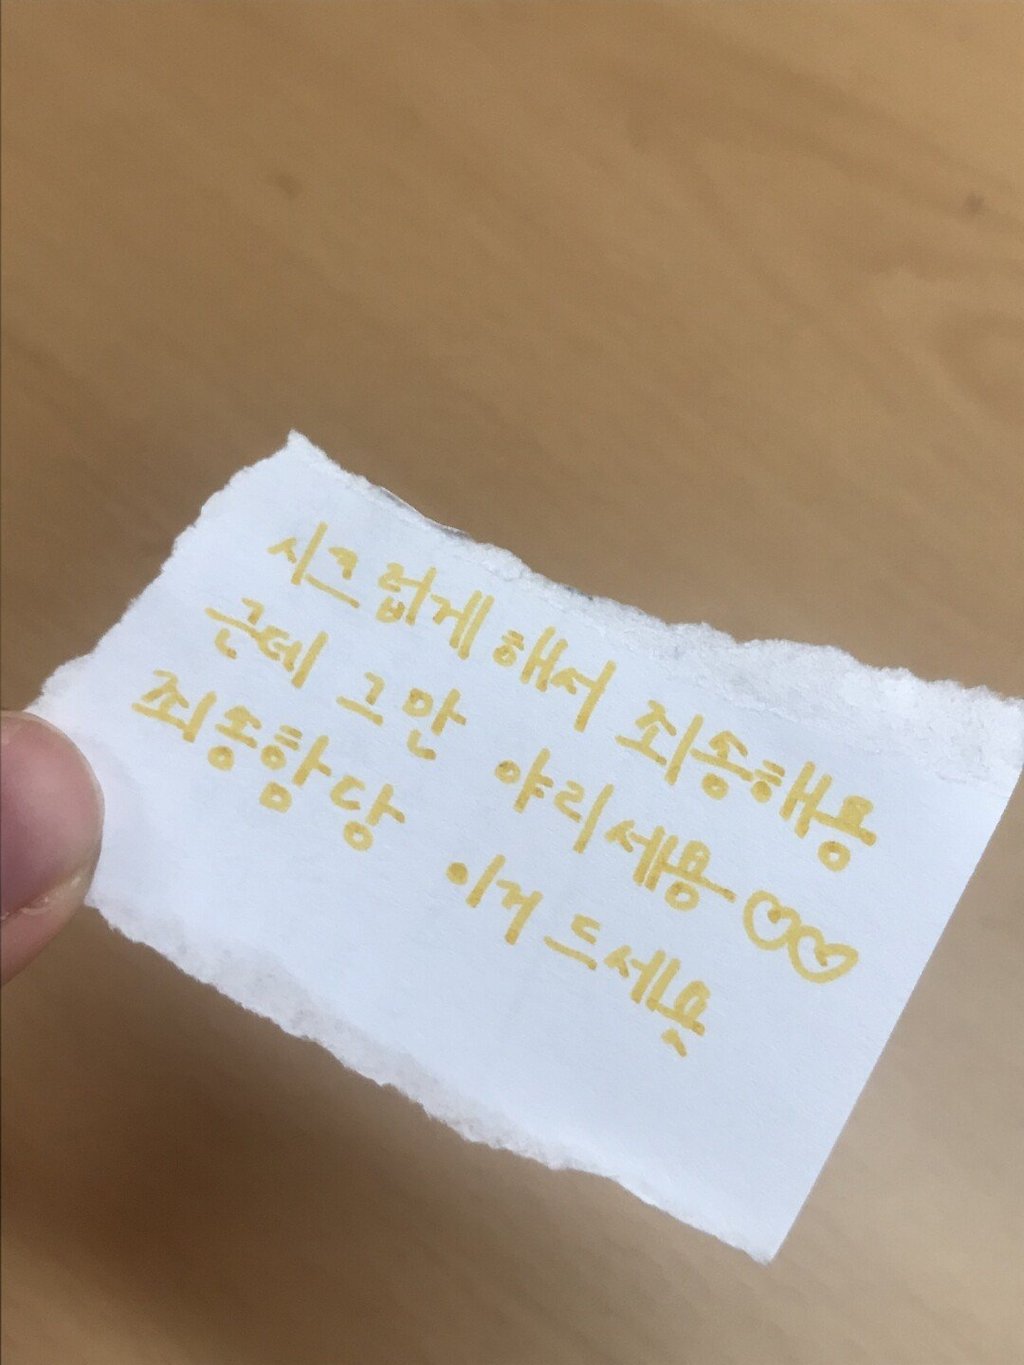 시크럽게 해서 죄송해용
근데 그만 야리세용~♡♡
죄송함당 이거 드세욧